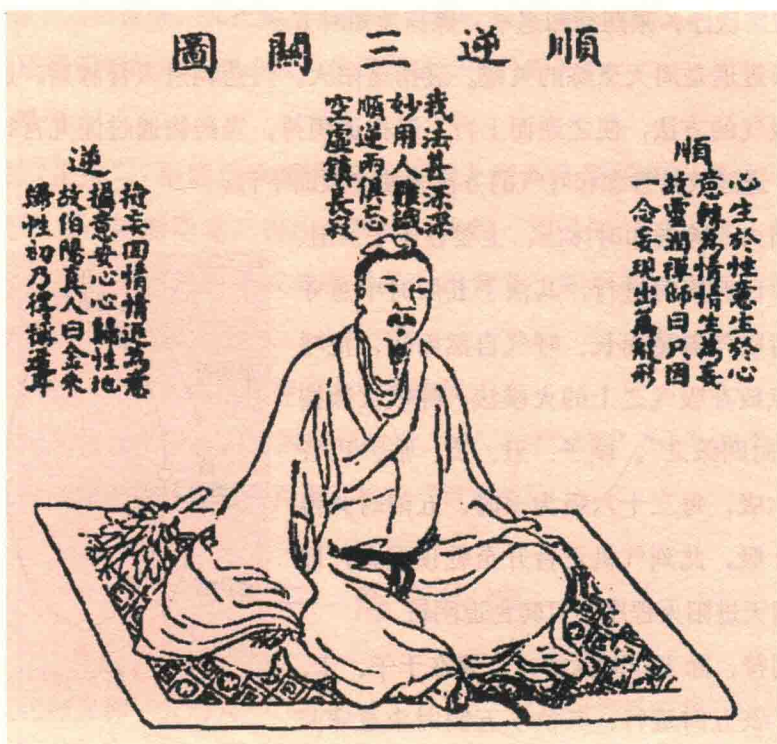 順逆三關圖
順
心生於性意生於心
意轉為情情生為妄
故靈潤禪師曰只因
一念妄現出萬般形
我法甚深深
妙用人難識
順逆兩俱忘
空虛鎮長寂
逆
檢妄回情情返為意
攝意安心心歸性地
故伯陽真人曰金來
歸性初乃得稱還丹